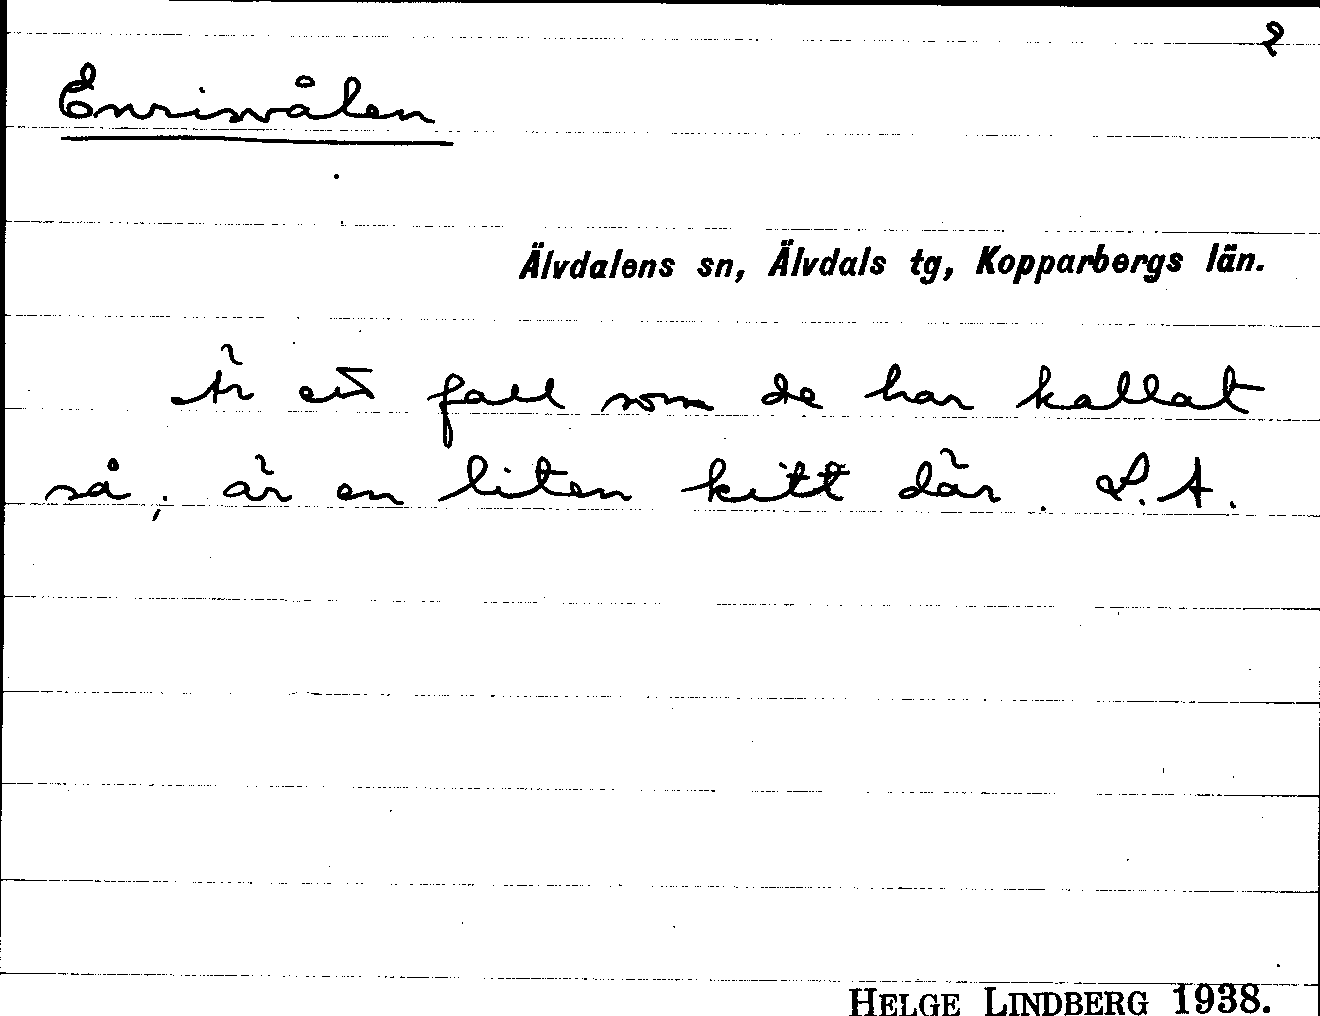 2
Enrisvålen
Älvdalens sn, Älvdals tg, Kopparbergs län.
Är ett fall som de har kallat
så; är en liten kitt där. L. A.
HELGE LINDBERG 1938.